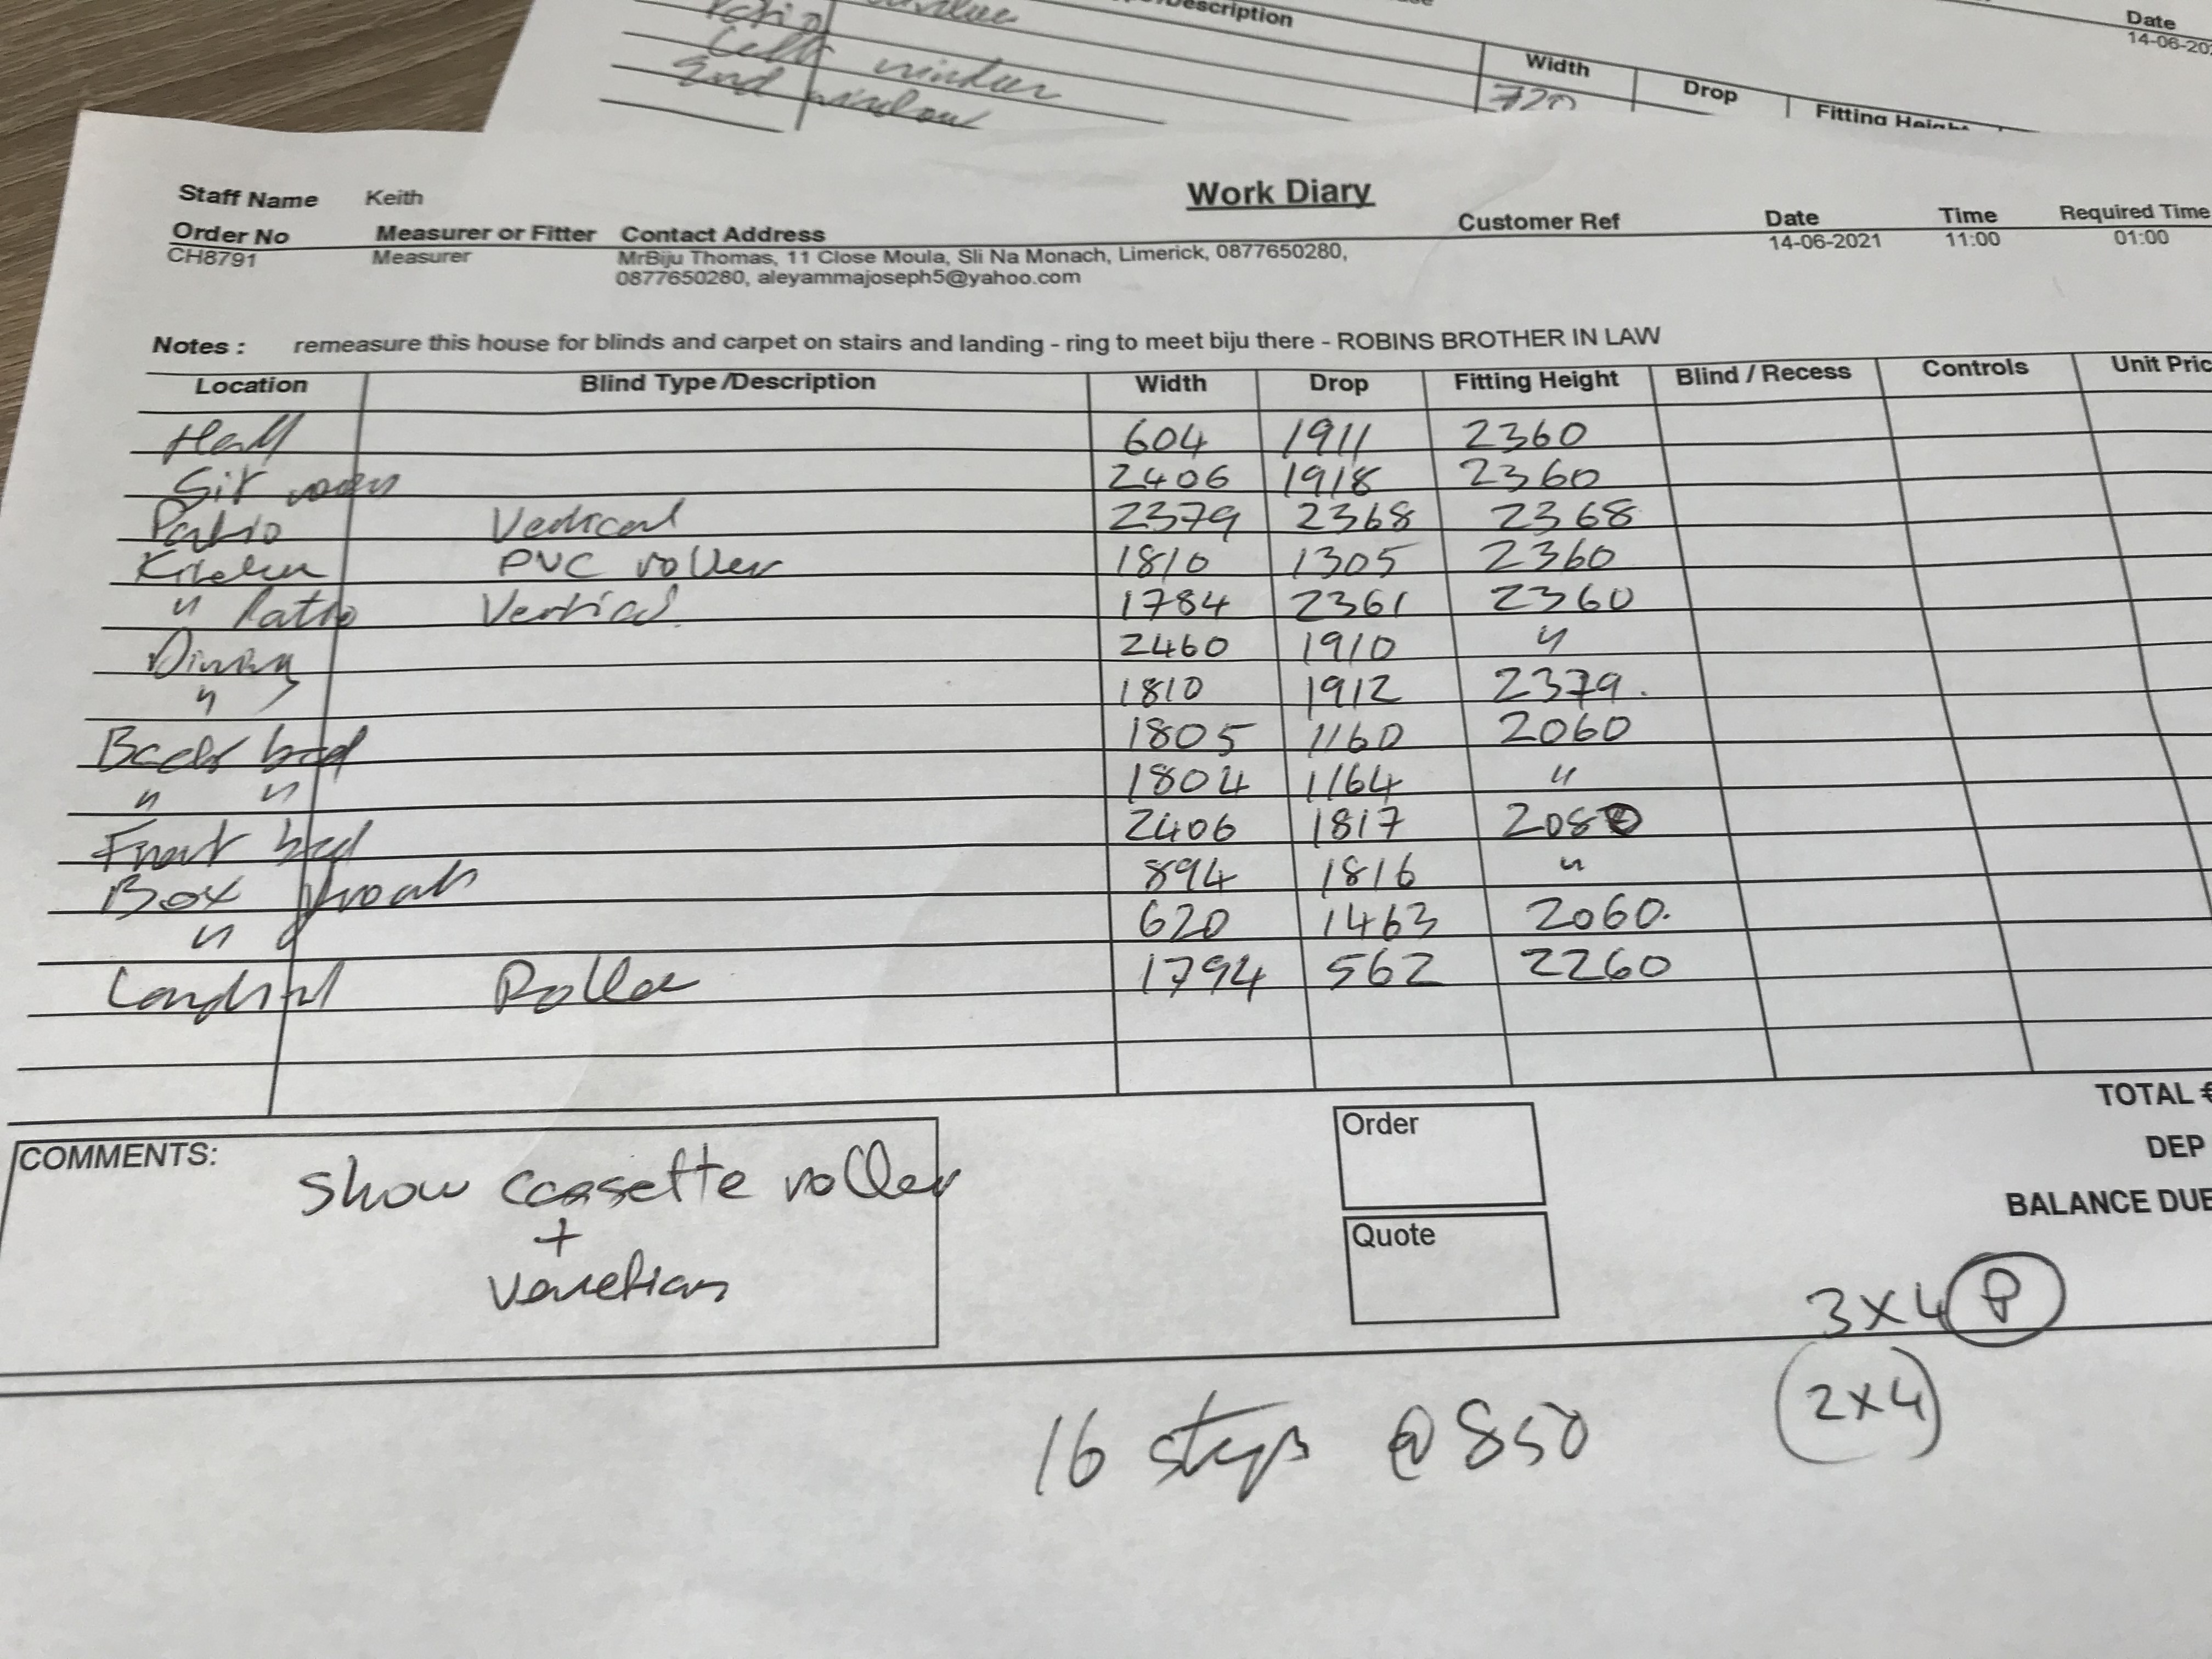 Description
Date
14-06-20
window
Width
Drop
Fitting Heigh
End window
720
Staff Name Keith
Work Diary
Order No Measurer or Fitter Contact Address Customer Ref Date Time Required Time
CH8791 Measurer MrBiju Thomas, 11 Close Moula, Sli Na Monach, Limerick, 0877650280, 14-06-2021 11:00 01:00
0877650280, aleyammajoseph5@yahoo.com
Notes : remeasure this house for blinds and carpet on stairs and landing - ring to meet biju there - ROBINS BROTHER IN LAW
Location Blind Type /Description Width Drop Fitting Height Blind / Recess Controls Unit Pric
Hall 604 1911 2360
Sit room 2406 1918 2360
Patio Vertical 2379 2368 2368
Kitchen PVC roller 1810 1305 2360
" Patio Vertical 1784 2361 2360
Dining 2460 1910 "
" 1810 1912 2379.
Back bed 1805 1160 2060
" " 1804 1164 "
Front bed 2406 1817 2080
Box 894 1816 "
" 620 1463 2060.
Landing Roller 1794 562 2260
TOTAL €
DEP
BALANCE DUE
COMMENTS: show cassette roller
+
venetian
Order
Quote
3x4 P
(2x4)
16 steps @ 850